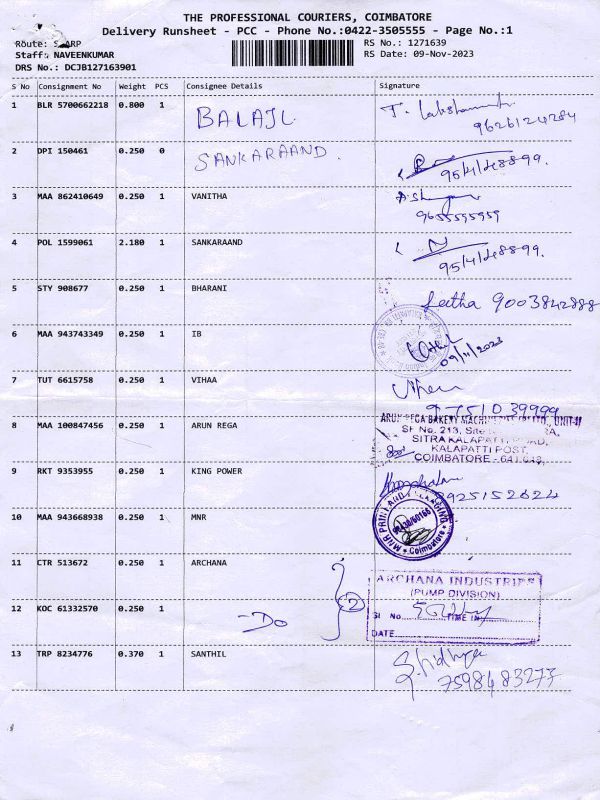 THE PROFESSIONAL COURIERS, COIMBATORE
Delivery Runsheet - PCC - Phone No.:0422-3505555 - Page No.:1
Route:
Staff: NAVEENKUMAR
DRS No.: DCJB127163901
RS No.: 1271639
RS Date: 09-Nov-2023
S No Consignment No Weight PCS Consignee Details Signature
1 BLR 5700662218 0.800 1 BALAJI
9626124284
2 DPI 150461 0.250 0 SANKARAAND.
95/4/48899.
3 MAA 862410649 0.250 1 VANITHA
9655595959
4 POL 1599061 2.180 1 SANKARAAND
95/4/48899.
5 STY 908677 0.250 1 BHARANI
9003842888
6 MAA 943743349 0.250 1 IB
09/11/2023
7 TUT 6615758 0.250 1 VIHAA
97510 39999
8 MAA 100847456 0.250 1 ARUN REGA
UNIT-II
SF No. 213,
SITRA KALAPATTI ROAD,
KALAPATTI POST,
COIMBATORE - 641
9 RKT 9353955 0.250 1 KING POWER
8925152624
10 MAA 943668938 0.250 1 MNR
MNR PRINT AND PACKAGING
Coimbatore
11 CTR 513672 0.250 1 ARCHANA
ARCHANA INDUSTRIES
(PUMP DIVISION)
2
12 KOC 61332570 0.250 1 -Do
Sl No. TIME IN
DATE
13 TRP 8234776 0.370 1 SANTHIL
7598483273